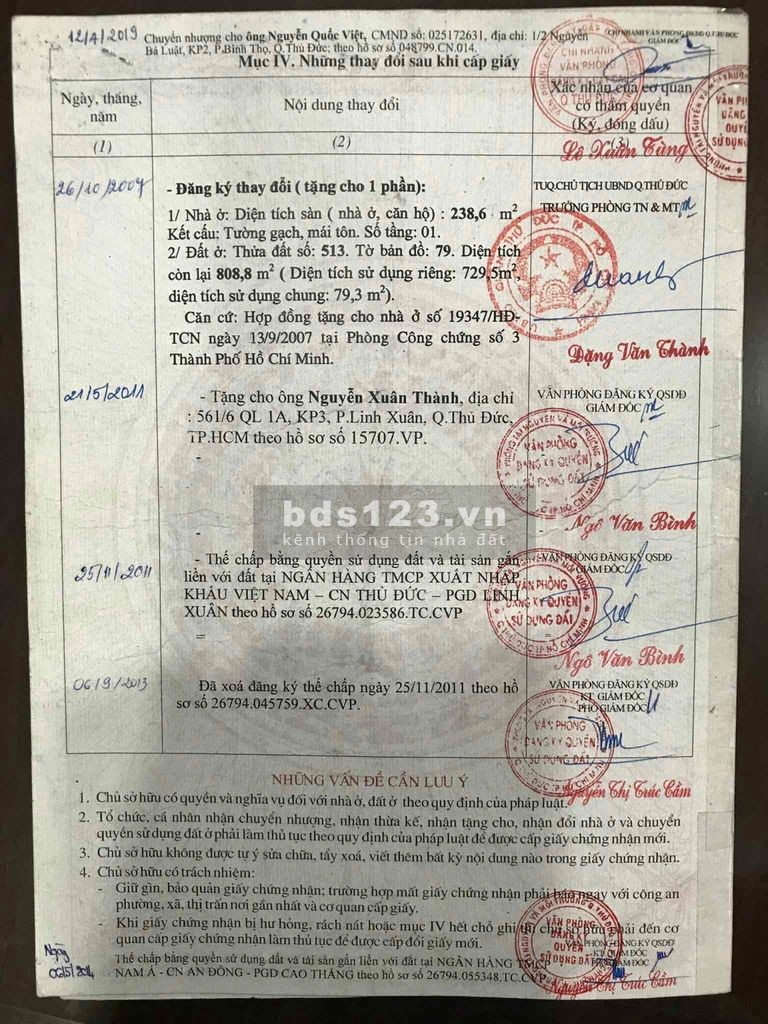 12/4/2019
Chuyển nhượng cho ông Nguyễn Quốc Việt, CMND số: 025172631, địa chỉ: 1/2 Nguyễn
Bá Luật, KP2, P.Bình Thọ, Q.Thủ Đức; theo hồ sơ số 048799.CN.014.
CHI NHÁNH VĂN PHÒNG ĐKĐĐ Q.THỦ ĐỨC
GIÁM ĐỐC
Mục IV. Những thay đổi sau khi cấp giấy
Ngày, tháng,
năm
Nội dung thay đổi
Xác nhận của cơ quan
có thẩm quyền
(Ký, đóng dấu)
(1)
(2)
(3)
CHI NHÁNH
VĂN PHÒNG
ĐĂNG KÝ ĐẤT ĐAI
Q. THỦ ĐỨC
Lê Xuân Tùng
26/10/2007
- Đăng ký thay đổi ( tặng cho 1 phần):
1/ Nhà ở: Diện tích sàn ( nhà ở, căn hộ) : 238,6 m²
Kết cấu: Tường gạch, mái tôn. Số tầng: 01.
2/ Đất ở: Thửa đất số: 513. Tờ bản đồ: 79. Diện tích
còn lại 808,8 m² ( Diện tích sử dụng riêng: 729,5m²,
diện tích sử dụng chung: 79,3 m²).
Căn cứ: Hợp đồng tặng cho nhà ở số 19347/HĐ-
TCN ngày 13/9/2007 tại Phòng Công chứng số 3
Thành Phố Hồ Chí Minh.
TUQ.CHỦ TỊCH UBND Q.THỦ ĐỨC
TRƯỞNG PHÒNG TN & MT
Đặng Văn Thành
21/5/2011
- Tặng cho ông Nguyễn Xuân Thành, địa chỉ
: 561/6 QL 1A, KP3, P.Linh Xuân, Q.Thủ Đức,
TP.HCM theo hồ sơ số 15707.VP.
VĂN PHÒNG ĐĂNG KÝ QSDĐ
GIÁM ĐỐC
VĂN PHÒNG
ĐĂNG KÝ QUYỀN
SỬ DỤNG ĐẤT
Ngô Văn Bình
bds123.vn
kênh thông tin nhà đất
25/11/2011
- Thế chấp bằng quyền sử dụng đất và tài sản gắn
liền với đất tại NGÂN HÀNG TMCP XUẤT NHẬP
KHẨU VIỆT NAM – CN THỦ ĐỨC – PGD LINH
XUÂN theo hồ sơ số 26794.023586.TC.CVP
=
VĂN PHÒNG ĐĂNG KÝ QSDĐ
GIÁM ĐỐC
VĂN PHÒNG
ĐĂNG KÝ QUYỀN
SỬ DỤNG ĐẤT
Ngô Văn Bình
06/9/2013
Đã xoá đăng ký thế chấp ngày 25/11/2011 theo hồ
sơ số 26794.045759.XC.CVP.
VĂN PHÒNG ĐĂNG KÝ QSDĐ
KT. GIÁM ĐỐC
PHÓ GIÁM ĐỐC
VĂN PHÒNG
ĐĂNG KÝ QUYỀN
SỬ DỤNG ĐẤT
Nguyễn Thị Trúc Cầm
NHỮNG VẤN ĐỀ CẦN LƯU Ý
1. Chủ sở hữu có quyền và nghĩa vụ đối với nhà ở, đất ở theo quy định của pháp luật.
2. Tổ chức, cá nhân nhận chuyển nhượng, nhận thừa kế, nhận tặng cho, nhận đổi nhà ở và chuyển
quyền sử dụng đất ở phải làm thủ tục theo quy định của pháp luật để được cấp giấy chứng nhận mới.
3. Chủ sở hữu không được tự ý sửa chữa, tẩy xoá, viết thêm bất kỳ nội dung nào trong giấy chứng nhận.
4. Chủ sở hữu có trách nhiệm:
- Giữ gìn, bảo quản giấy chứng nhận; trường hợp mất giấy chứng nhận phải báo ngay với công an
phường, xã, thị trấn nơi gần nhất và cơ quan cấp giấy.
- Khi giấy chứng nhận bị hư hỏng, rách nát hoặc mục IV hết chỗ ghi thì chủ sở hữu phải đến cơ
quan cấp giấy chứng nhận làm thủ tục để được cấp đổi giấy mới.
Ngày
06/5/2014
Thế chấp bằng quyền sử dụng đất và tài sản gắn liền với đất tại NGÂN HÀNG TMCP
NAM Á - CN AN ĐÔNG - PGD CAO THẮNG theo hồ sơ số 26794.055348.TC.CVP
VĂN PHÒNG
ĐĂNG KÝ
QUYỀN
SỬ DỤNG ĐẤT
Nguyễn Thị Trúc Cầm